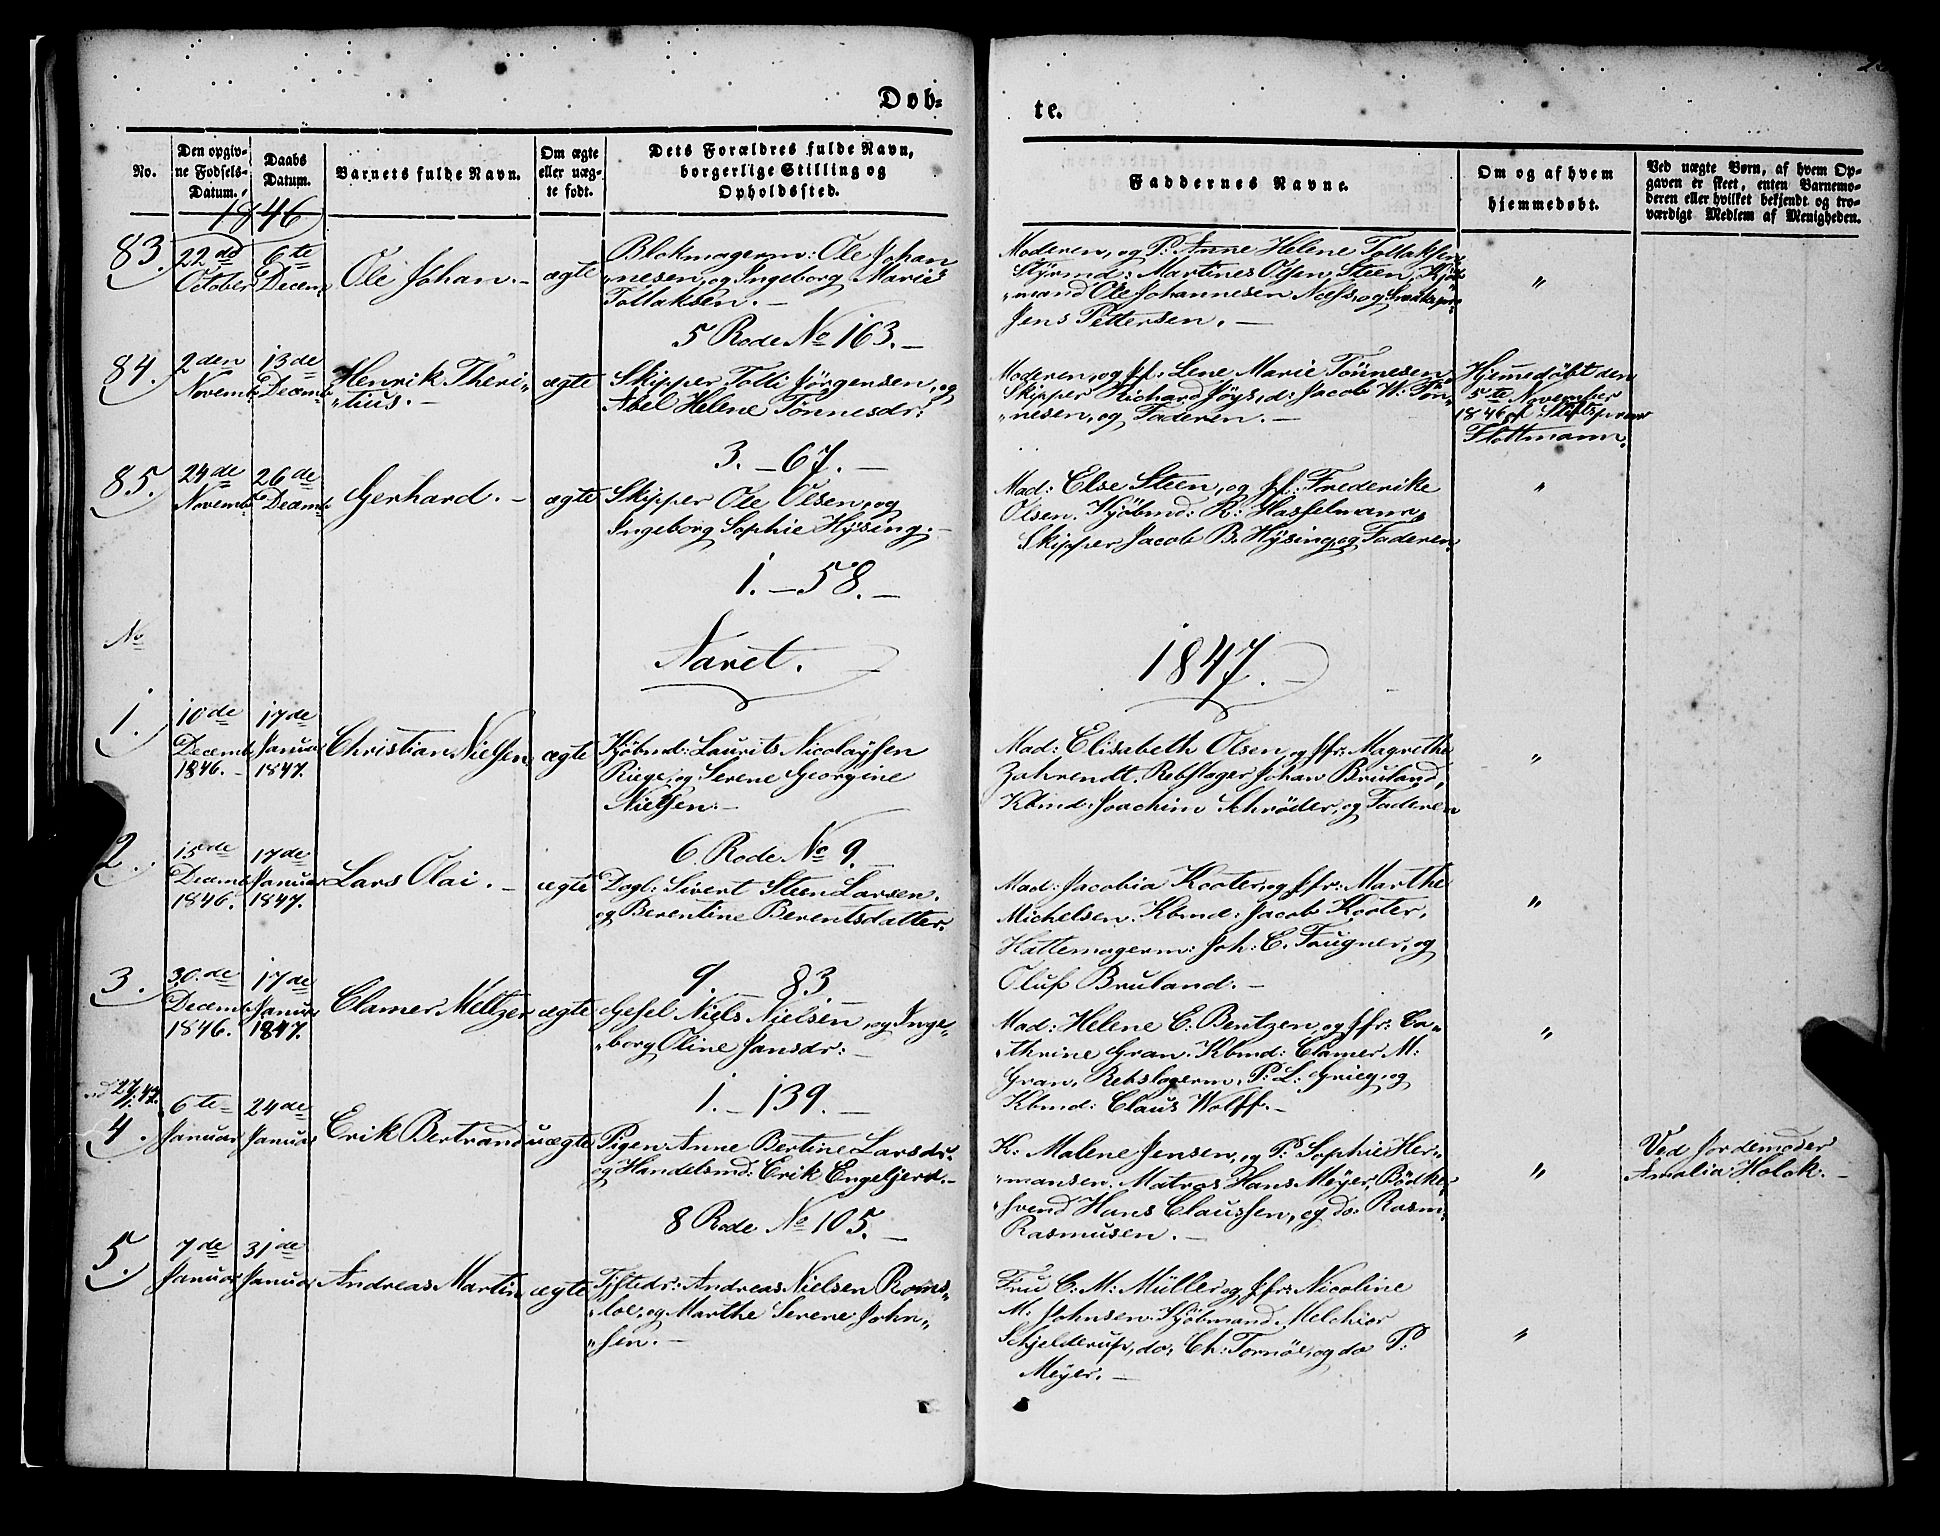 Døb-
te.
No.
Den opgiv-
ne Fødsels-
Datum.
Daabs
Datum.
Barnets fulde Navn.
Om ægte
eller uæg-
te født.
Dets Forældres fulde Navn,
borgerlige Stilling og
Opholdssted.
Faddernes Navne.
Om og af hvem
hjemmedøbt.
Ved uægte Børn, af hvem Op-
gaven er skeet, enten Barnemo-
deren eller hvilket bekjendt og tro-
værdigt Medlem af Menigheden.
1846
83.
22nd
October
6te
Decem.
Ole Johan. -
ægte
Blokmagerm: Ole Johan
"nesen, og Ingeborg Marie
Tollaksen. -
5 Rode No 163. -
Moderen, og P: Anne Helene Tollaksen
Styrmd: Martines Olsen Steen, Kjøb
"mand Ole Johannesen Næss, og
Jens Pettersen. -
"
84.
2den
Novemb.
13de
Decemb
Henrik Theri-
"tius. -
ægte
Skipper Tolli Jörgensen, og
Abel Helene Tönnesdr:
3. - 67. -
Moderen, og Jf: Lene Marie Tönnesen
Skipper Richard Jöys, do: Jacob W: Tön-
"nesen, og Faderen. -
Hjemmedöbt den
5te November
1846 af Stiftsprovst
Flottmann.
85.
24de
Novemb
26de
Decemb
Gerhard. -
ægte
Skipper Ole Olsen, og
Ingeborg Sophie Hÿsing. -
1. - 58. -
Mad: Else Steen, og Jf: Frederike
Olsen. Kjöbmd: R: Hasselmann,
Skipper Jacob B. Hÿsing, og Faderen.
"
No
Aaret.
1847. -
1.
10de
Decemb
1846. -
17de
Januar
1847.
Christian Nielsen
ægte
Kjöbmd: Laurits Nicolaysen
Riege, og Serene Georgine
Nielsen. -
6. Rode No 9.
Mad: Elisabeth Olsen, og Jfr: Magrethe
Zahrendt. Rebslager Johan Bruland,
Kbmd: Joachim Schröder, og Faderen
"
2.
15de
Decemb
1846.
17de
Januar
1847.
Lars Olai. -
ægte
Dagl: Sivert Steen Larsen.
og Berentine Berentsdatter.
9. - 83
Mad: Jacobia Kooter, og Jfr: Marthe
Michelsen. Kbmd: Jacob Kooter,
Hattemagerm: Joh: C. Faugner, og
Oluf Bruland. -
"
3.
30.de
Decemb
1846.
17de
Januar
1847.
Clamer Meltzer
ægte
Gesel Niels Nielsen, og Inge-
"borg Oline Jansdr: -
1. - 139. -
Mad: Helene C. Bentzen, og Jfr: Ca-
"thrine Gran. Kbmd: Clamer M:
Gran, Rebslagerm. P: L: Grieg, og
Kbmd: Claus Wolff. -
"
4.
6te
Januar
24de
Januar
Erik Bertrand
uægte
Pigen Anne Bertine Larsdr.
og Handelsmd: Erik Engeljert. -
8 Rode No 105. -
K: Malene Jensen, og P: Sophie Her-
"mansen. Matros Hans Meÿer, Bödker
"svend Hans Claussen, og do: Rasm:
Rasmusen. -
"
Ved Jordemoder
Amalia Holck. -
5.
7de
Januar
31de
Januar
Andreas Martin
ægte
Andreas Nielsen Roms-
"loe, og Marthe Serene John-
"sen. -
Fru C: M: Müller, og Jfr: Nicoline
M: Johnsen. Kjöbmand. Melchior
Schjelderup, do. Ch: Tornöe, og do P:
Meÿer. -
"